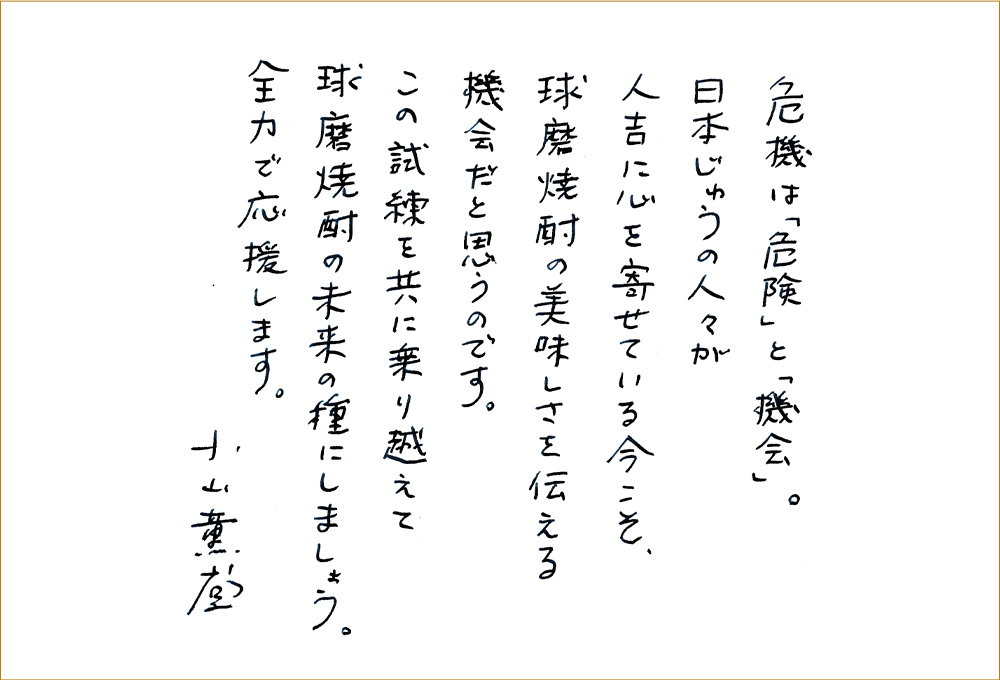 危機は「危険」と「機会」。
日本じゅうの人々が
人吉に心を寄せている今こそ、
球磨焼酎の美味しさを伝える
機会だと思うのです。
この試練を共に乗り越えて
球磨焼酎の未来の種にしましょう。
全力で応援します。
小山薫堂